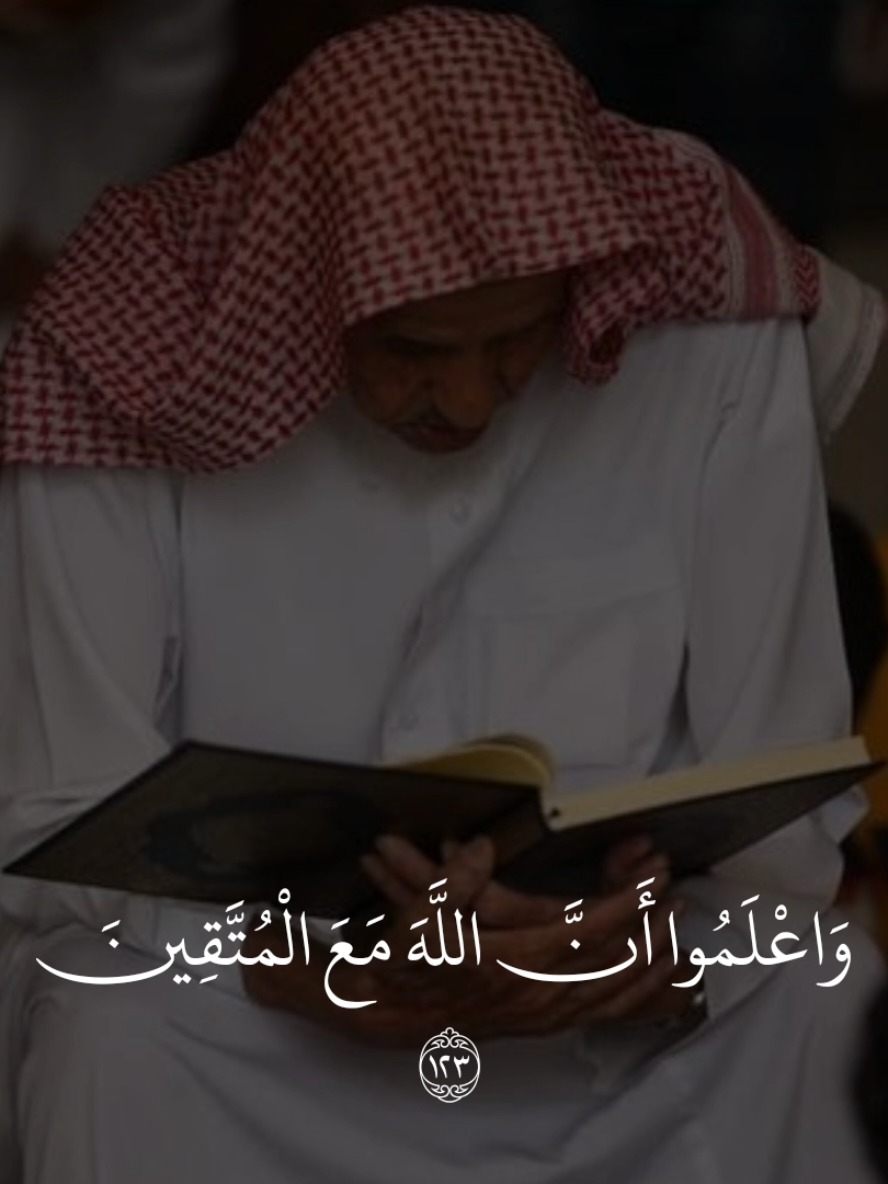 وَاعْلَمُوا أَنَّ اللَّهَ مَعَ الْمُتَّقِينَ
١٢٣